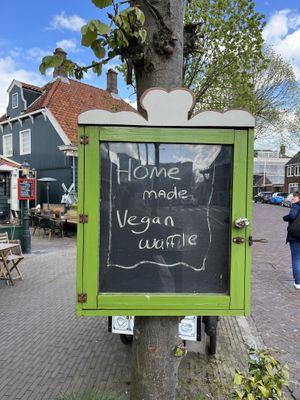 Home
made
Vegan
waffle